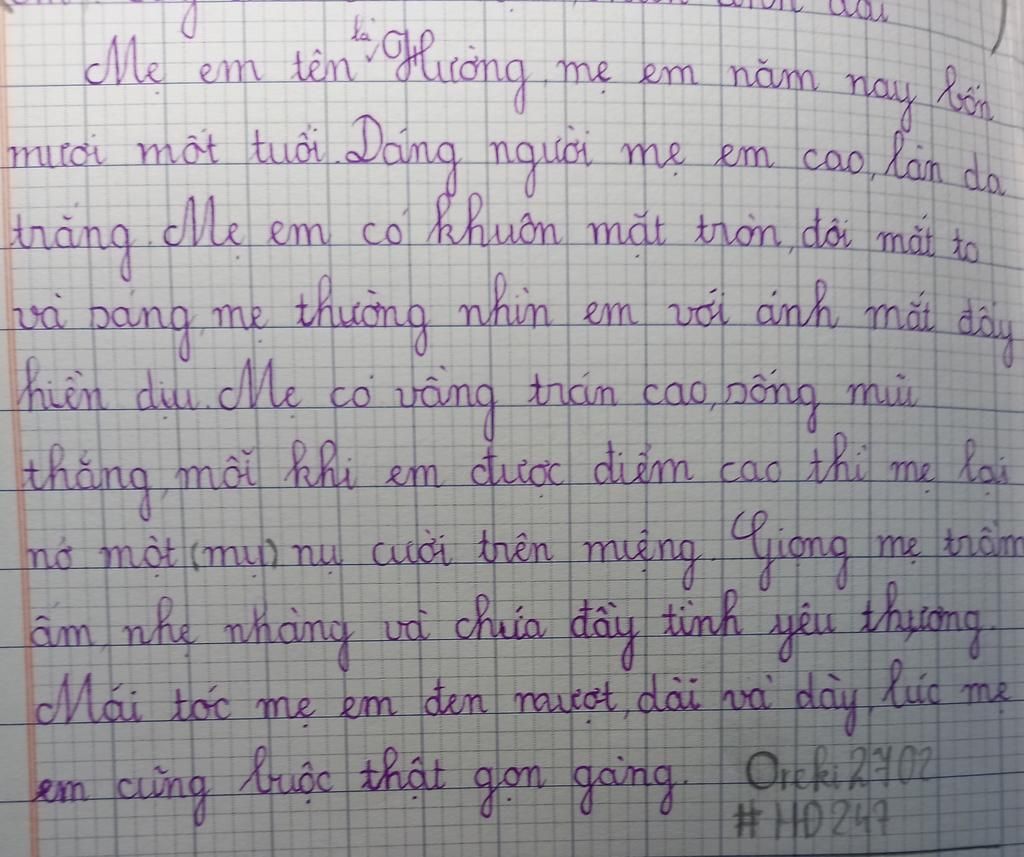 Mẹ em tên là Hường, mẹ em năm nay bốn
mươi mốt tuổi. Dáng người mẹ em cao, làn da
trắng. Mẹ em có khuôn mặt tròn, đôi mắt to
và sáng, mẹ thường nhìn em với ánh mắt đầy
hiền dịu. Mẹ có vầng trán cao, sống mũi
thẳng, mỗi khi em được điểm cao thì mẹ lại
nở một (mụ) nụ cười trên miệng. Giọng mẹ trầm
ấm, nhẹ nhàng và chứa đầy tình yêu thương.
Mái tóc mẹ em đen mượt, dài và dày, lúc mẹ
em cũng buộc thật gọn gàng. Oreki2702
#HD247